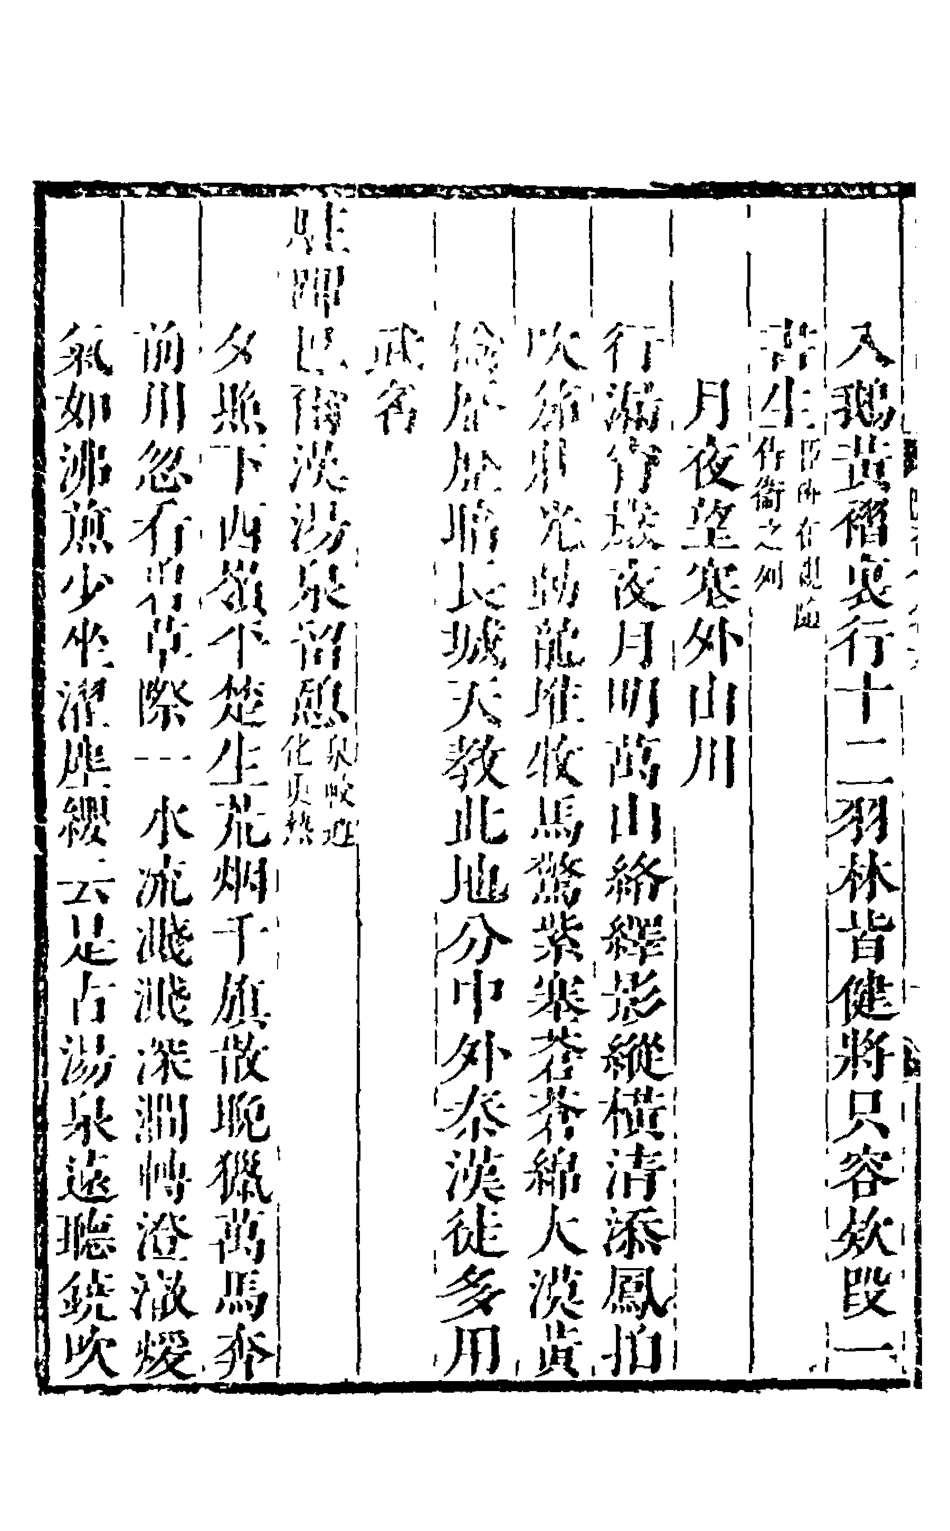 入鵝黃褶裏行十二羽林皆健將只容欸段一
書生臣衲在視随侍衞之列
月夜望塞外山川
行漏宵嚴夜月明萬山絡繹影縱橫清添鳳拍
吹笳壯光動龍堆牧馬驚紫塞蒼蒼綿大漠黃
雲歷歷暗長城天教此地分中外秦漢徒多用
武名
駐蹕巴爾漢湯泉留憩泉較遵化更熱
夕照下西嶺平楚生荒烟千旗散晚獵萬馬奔
前川忽看碧草際一水流濺濺深澗轉澄澈煖
氣如沸煎少坐濯塵纓云是古湯泉遠聽鐃吹